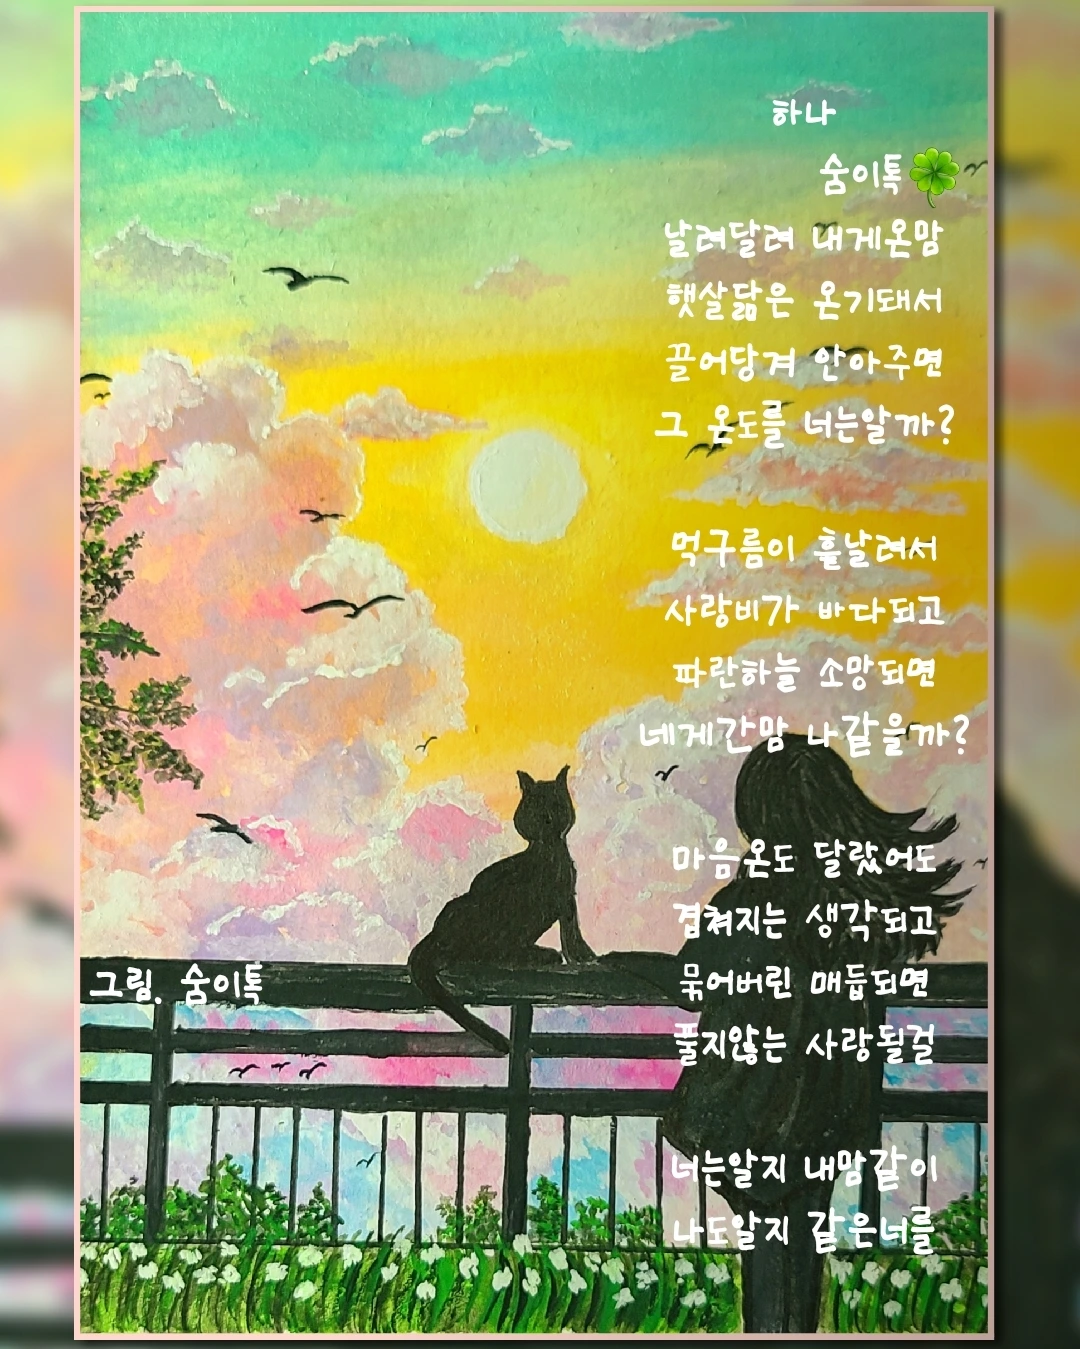 하나
숨이톡🍀
날려달려 내게온맘
햇살닮은 온기돼서
끌어당겨 안아주면
그 온도를 너는알까?
먹구름이 흩날려서
사랑비가 바다되고
파란하늘 소망되면
네게간맘 나같을까?
마음온도 달랐어도
겹쳐지는 생각되고
묶어버린 매듭되면
풀지않는 사랑될걸
너는알지 내맘같이
나도알지 같은너를
그림. 숨이톡